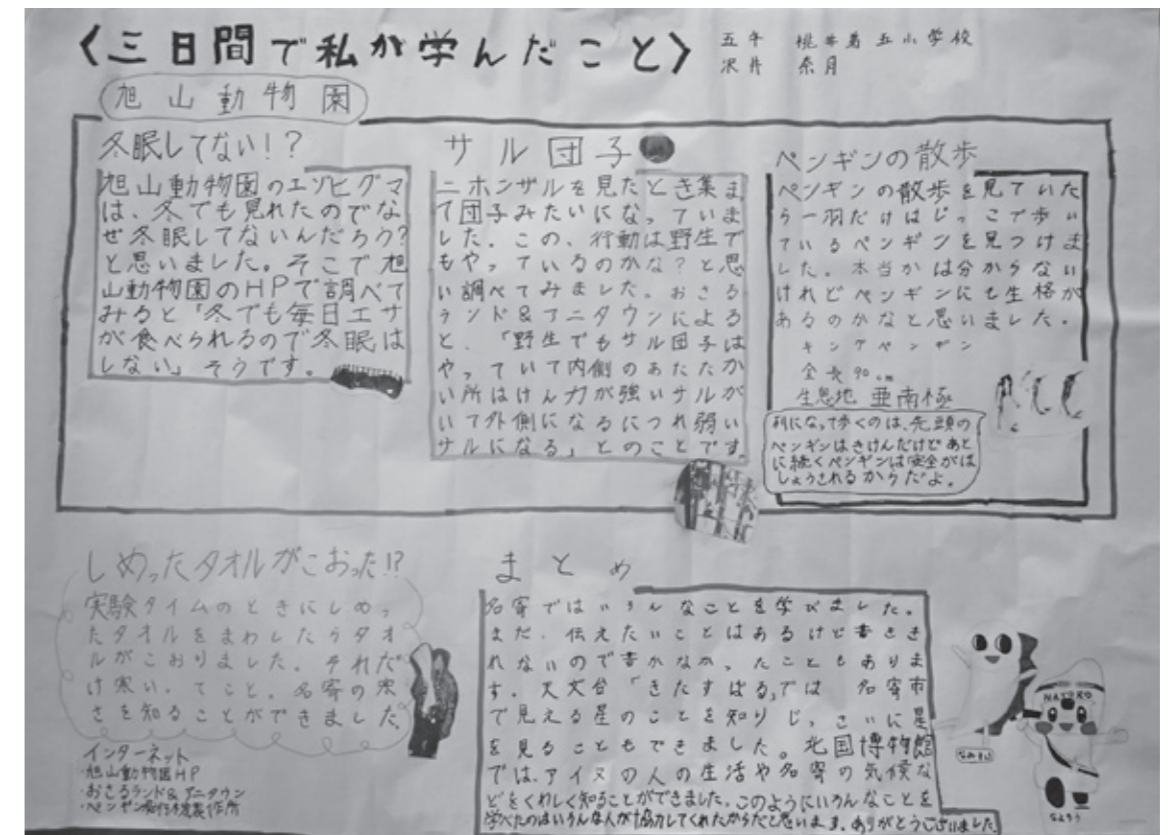 〈三日間で私が学んだこと〉
五年 桃井第五小学校
沢井 奈月
旭山動物園
冬眠してない!?
旭山動物園のエゾヒグマ
は、冬でも見れたのでな
ぜ冬眠してないんだろう?
と思いました。そこで旭
山動物園のHPで調べて
みると「冬でも毎日エサ
が食べられるので冬眠は
しない」そうです。
サル団子
ニホンザルを見たとき集ま
て団子みたいになっていま
した。この、行動は野生で
もやっているのかな?と思
い調べてみました。おさる
ランド&アニタウンによる
と、「野生でもサル団子は
やっていて内側のあたたか
い所はけん力が強いサルが
いて外側になるにつれ弱い
サルになる」とのことです。
ペンギンの散歩
ペンギンの散歩を見ていた
ら一羽だけはじっこで歩い
ているペンギンを見つけま
した。本当かは分からない
けれどペンギンにも生格が
あるのかなと思いました。
キングペンギン
全長90cm
生息地 亜南極
列になって歩くのは、先頭の
ペンギンはきけんだけどあと
に続くペンギンは安全がほ
しょうされるからだよ。
しめったタオルがこおった!?
実験タイムのときにしめっ
たタオルをまわしたらタオ
ルがこおりました。それだ
け寒いってこと。名寄の寒
さを知ることができました。
インターネット
・旭山動物園HP
・おさるランド&アニタウン
まとめ
名寄ではいろんなことを学びました。
まだ、伝えたいことはあるけど書きき
れないので書かなかったこともありま
す。天文台「きたすばる」では 名寄市
で見える星のことを知りじっさいに星
を見ることもできました。北国博物館
では、アイヌの人の生活や名寄の気候な
どをくわしく知ることができました。このようにいろんなことを
学べたのはいろんな人が協力してくれたからだと思います。ありがとうございました。
NAYORO
なよろう